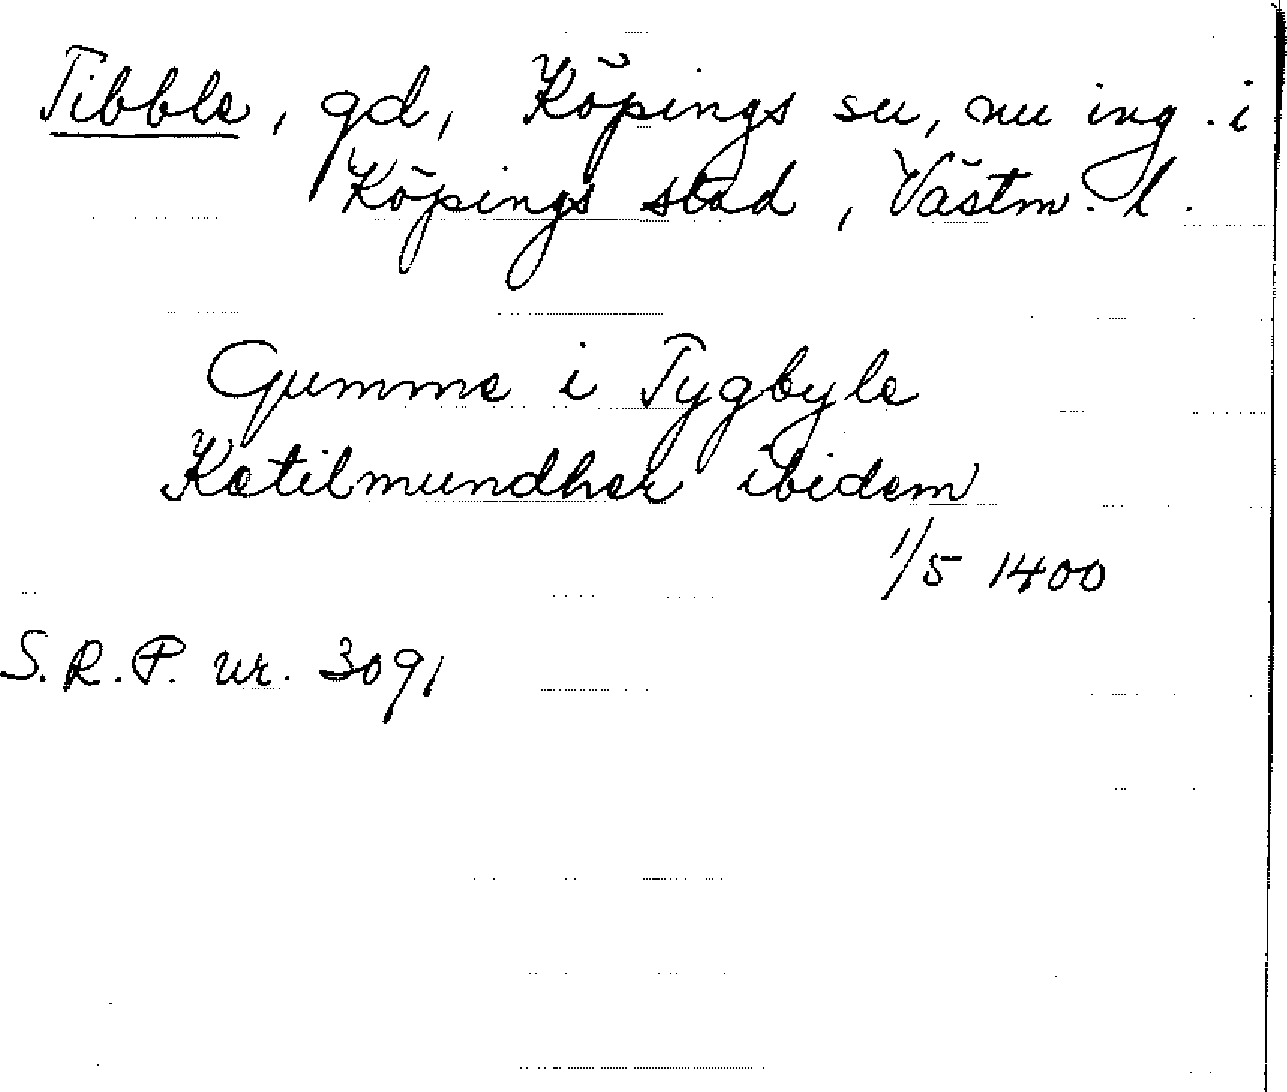 Tibble, gd, Köpings sn, nu ing. i
Köpings stad, Västm. l.
Gumme i Tygbyle
Kætilmundher ibidem
1/5 1400
S.R.P. nr. 3091